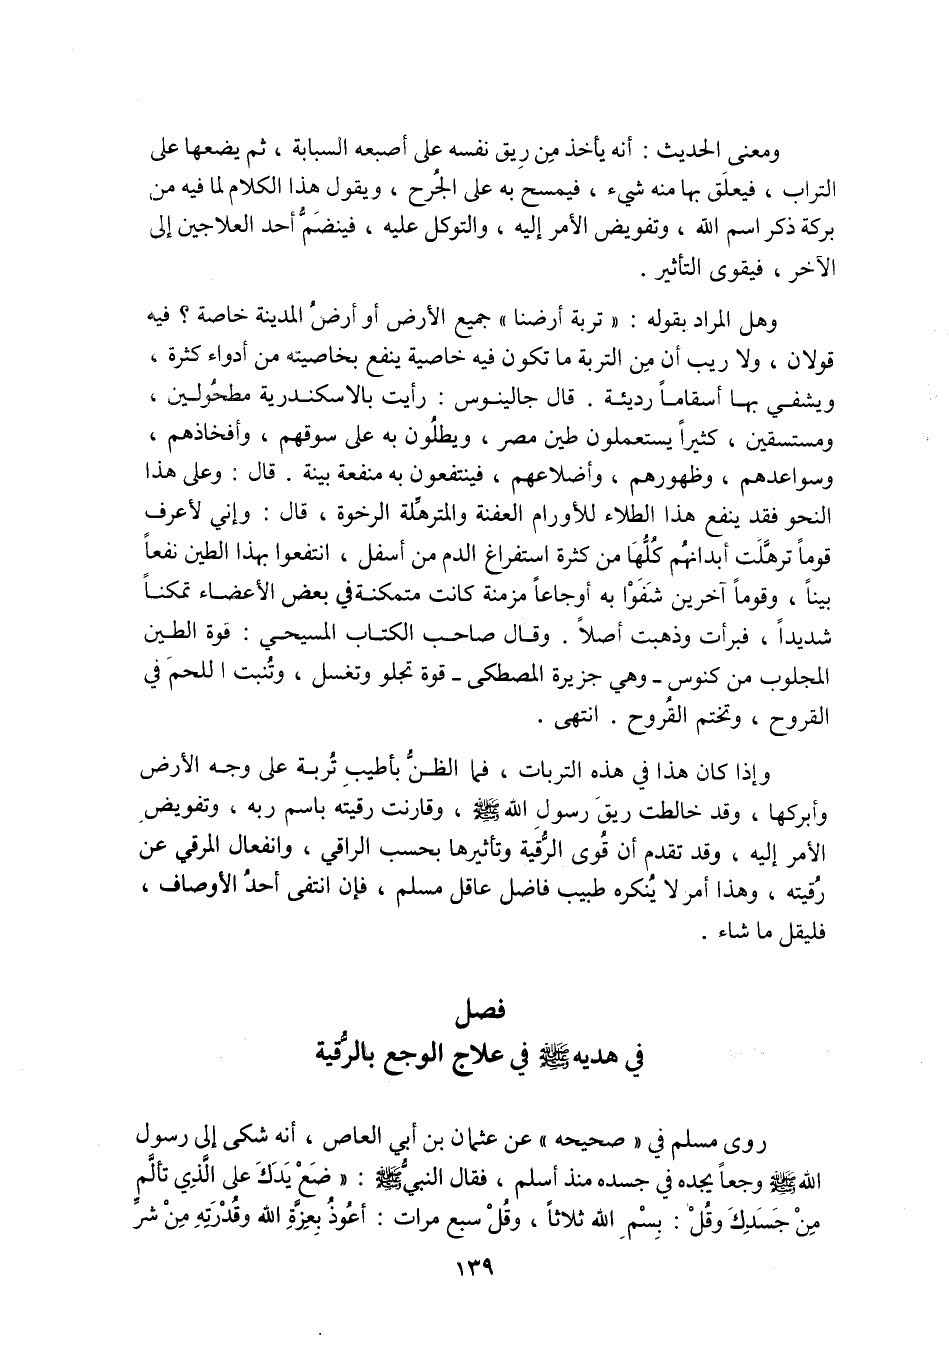 ومعنى الحديث : أنه يأخذ مِن رِيق نفسه على أصبعه السبابة ، ثم يضعها على
التراب ، فيعلَق بها منه شيء ، فيمسح به على الجُرح ، ويقول هذا الكلام لما فيه من
بركة ذكر اسم الله ، وتفويض الأمر إليه ، والتوكل عليه ، فينضَمُّ أحد العلاجين إلى
الآخر ، فيقوى التأثير .
وهل المراد بقوله : « تربة أرضنا » جميع الأرض أو أرضُ المدينة خاصة ؟ فيه
قولان ، ولا ريب أن مِن التربة ما تكون فيه خاصية ينفع بخاصيته من أدواء كثرة ،
ويشفي بها أسقاماً رديئة . قال جالينوس : رأيت بالاسكندرية مطحُولين ،
ومستسقين ، كثيراً يستعملون طين مصر ، ويطلُون به على سوقهم ، وأفخاذهم ،
وسواعدهم ، وظهورهم ، وأضلاعهم ، فينتفعون به منفعة بينة . قال : وعلى هذا
النحو فقد ينفع هذا الطلاء للأورام العفنة والمترهِّلة الرخوة ، قال : وإني لأعرف
قوماً ترهَّلت أبدانهُم كُلُّهَا من كثرة استفراغ الدم من أسفل ، انتفعوا بهذا الطين نفعاً
بيناً ، وقوماً آخرين شَفَوْا به أوجاعاً مزمنة كانت متمكنة في بعض الأعضاء تمكناً
شديداً ، فبرأت وذهبت أصلاً . وقال صاحب الكتاب المسيحي : قوة الطين
المجلوب من كنوس ـ وهي جزيرة المصطكى ـ قوة تجلو وتغسل ، وتُنبت اللحمَ في
القروح ، وتختم القُروح . انتهى .
وإذا كان هذا في هذه التربات ، فما الظنُّ بأطيبِ تُربة على وجه الأرض
وأبركها ، وقد خالطت ريقَ رسول الله ﷺ ، وقارنت رقيته باسم ربه ، وتفويضِ
الأمر إليه ، وقد تقدم أن قُوى الرُّقية وتأثيرها بحسب الراقي ، وانفعال المرقي عن
رُقيته ، وهذا أمر لا يُنكره طبيب فاضل عاقل مسلم ، فإن انتفى أحدُ الأوصاف ،
فليقل ما شاء .
فصل
في هديه ﷺ في علاج الوجع بالرُّقية
روى مسلم في « صحيحه » عن عثمان بن أبي العاص ، أنه شكى إلى رسول
الله ﷺ وجعاً يجده في جسده منذ أسلم ، فقال النبيُّ ﷺ : « ضَعْ يَدَكَ على الَّذِي تألَّم
مِنْ جَسَدِكَ وقُلْ : بِسْمِ الله ثلاثاً ، وقُلْ سبع مرات : أعُوذُ بِعِزَّةِ الله وقُدْرَتِهِ مِنْ شرِّ
١٣٩